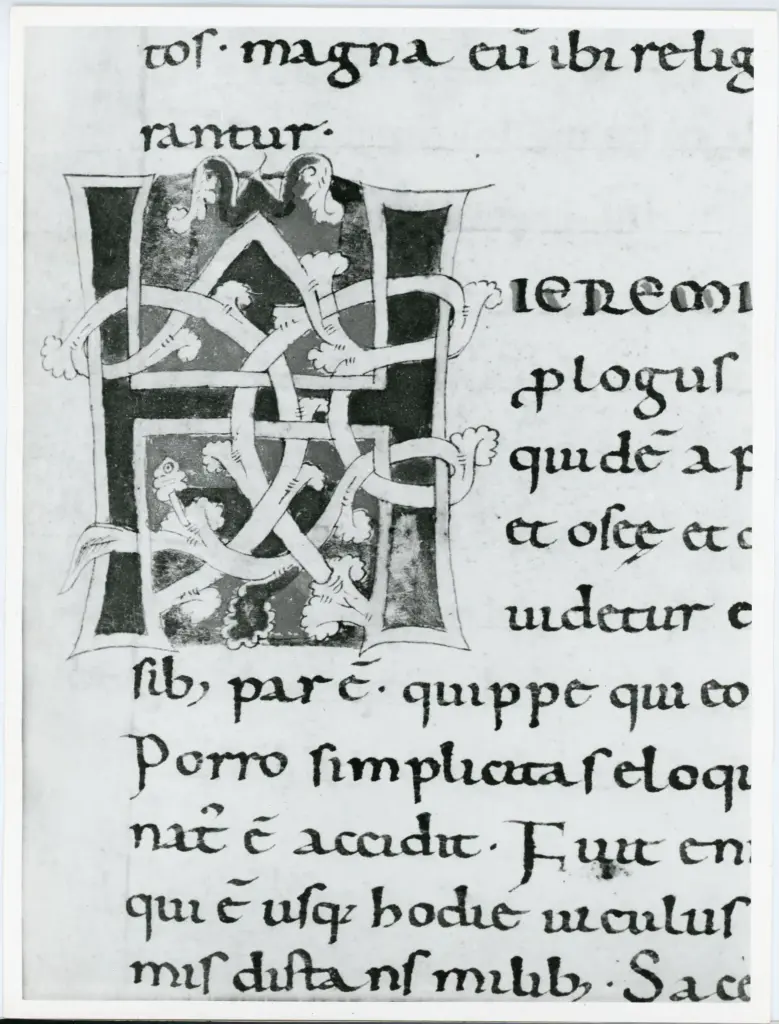 toſ · magna cū ibi relig
rantur ·
HIEREMI
ꝓlogus
quidē a p
et oſeę et
uidetur e
ſib; par ē · quippe qui eo
Porro ſimplicitaſ eloqu
nat̄ ē accidit · Fuit eni
qui ē uſq; hodie uiculuſ
miſ diſtanſ milib; · Sace